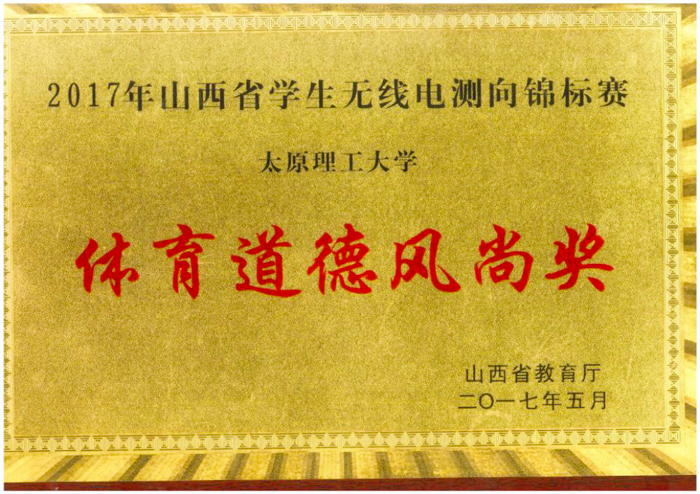 2017年山西省学生无线电测向锦标赛
太原理工大学
体育道德风尚奖
山西省教育厅
二〇一七年五月